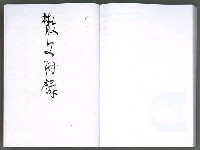 散文附錄